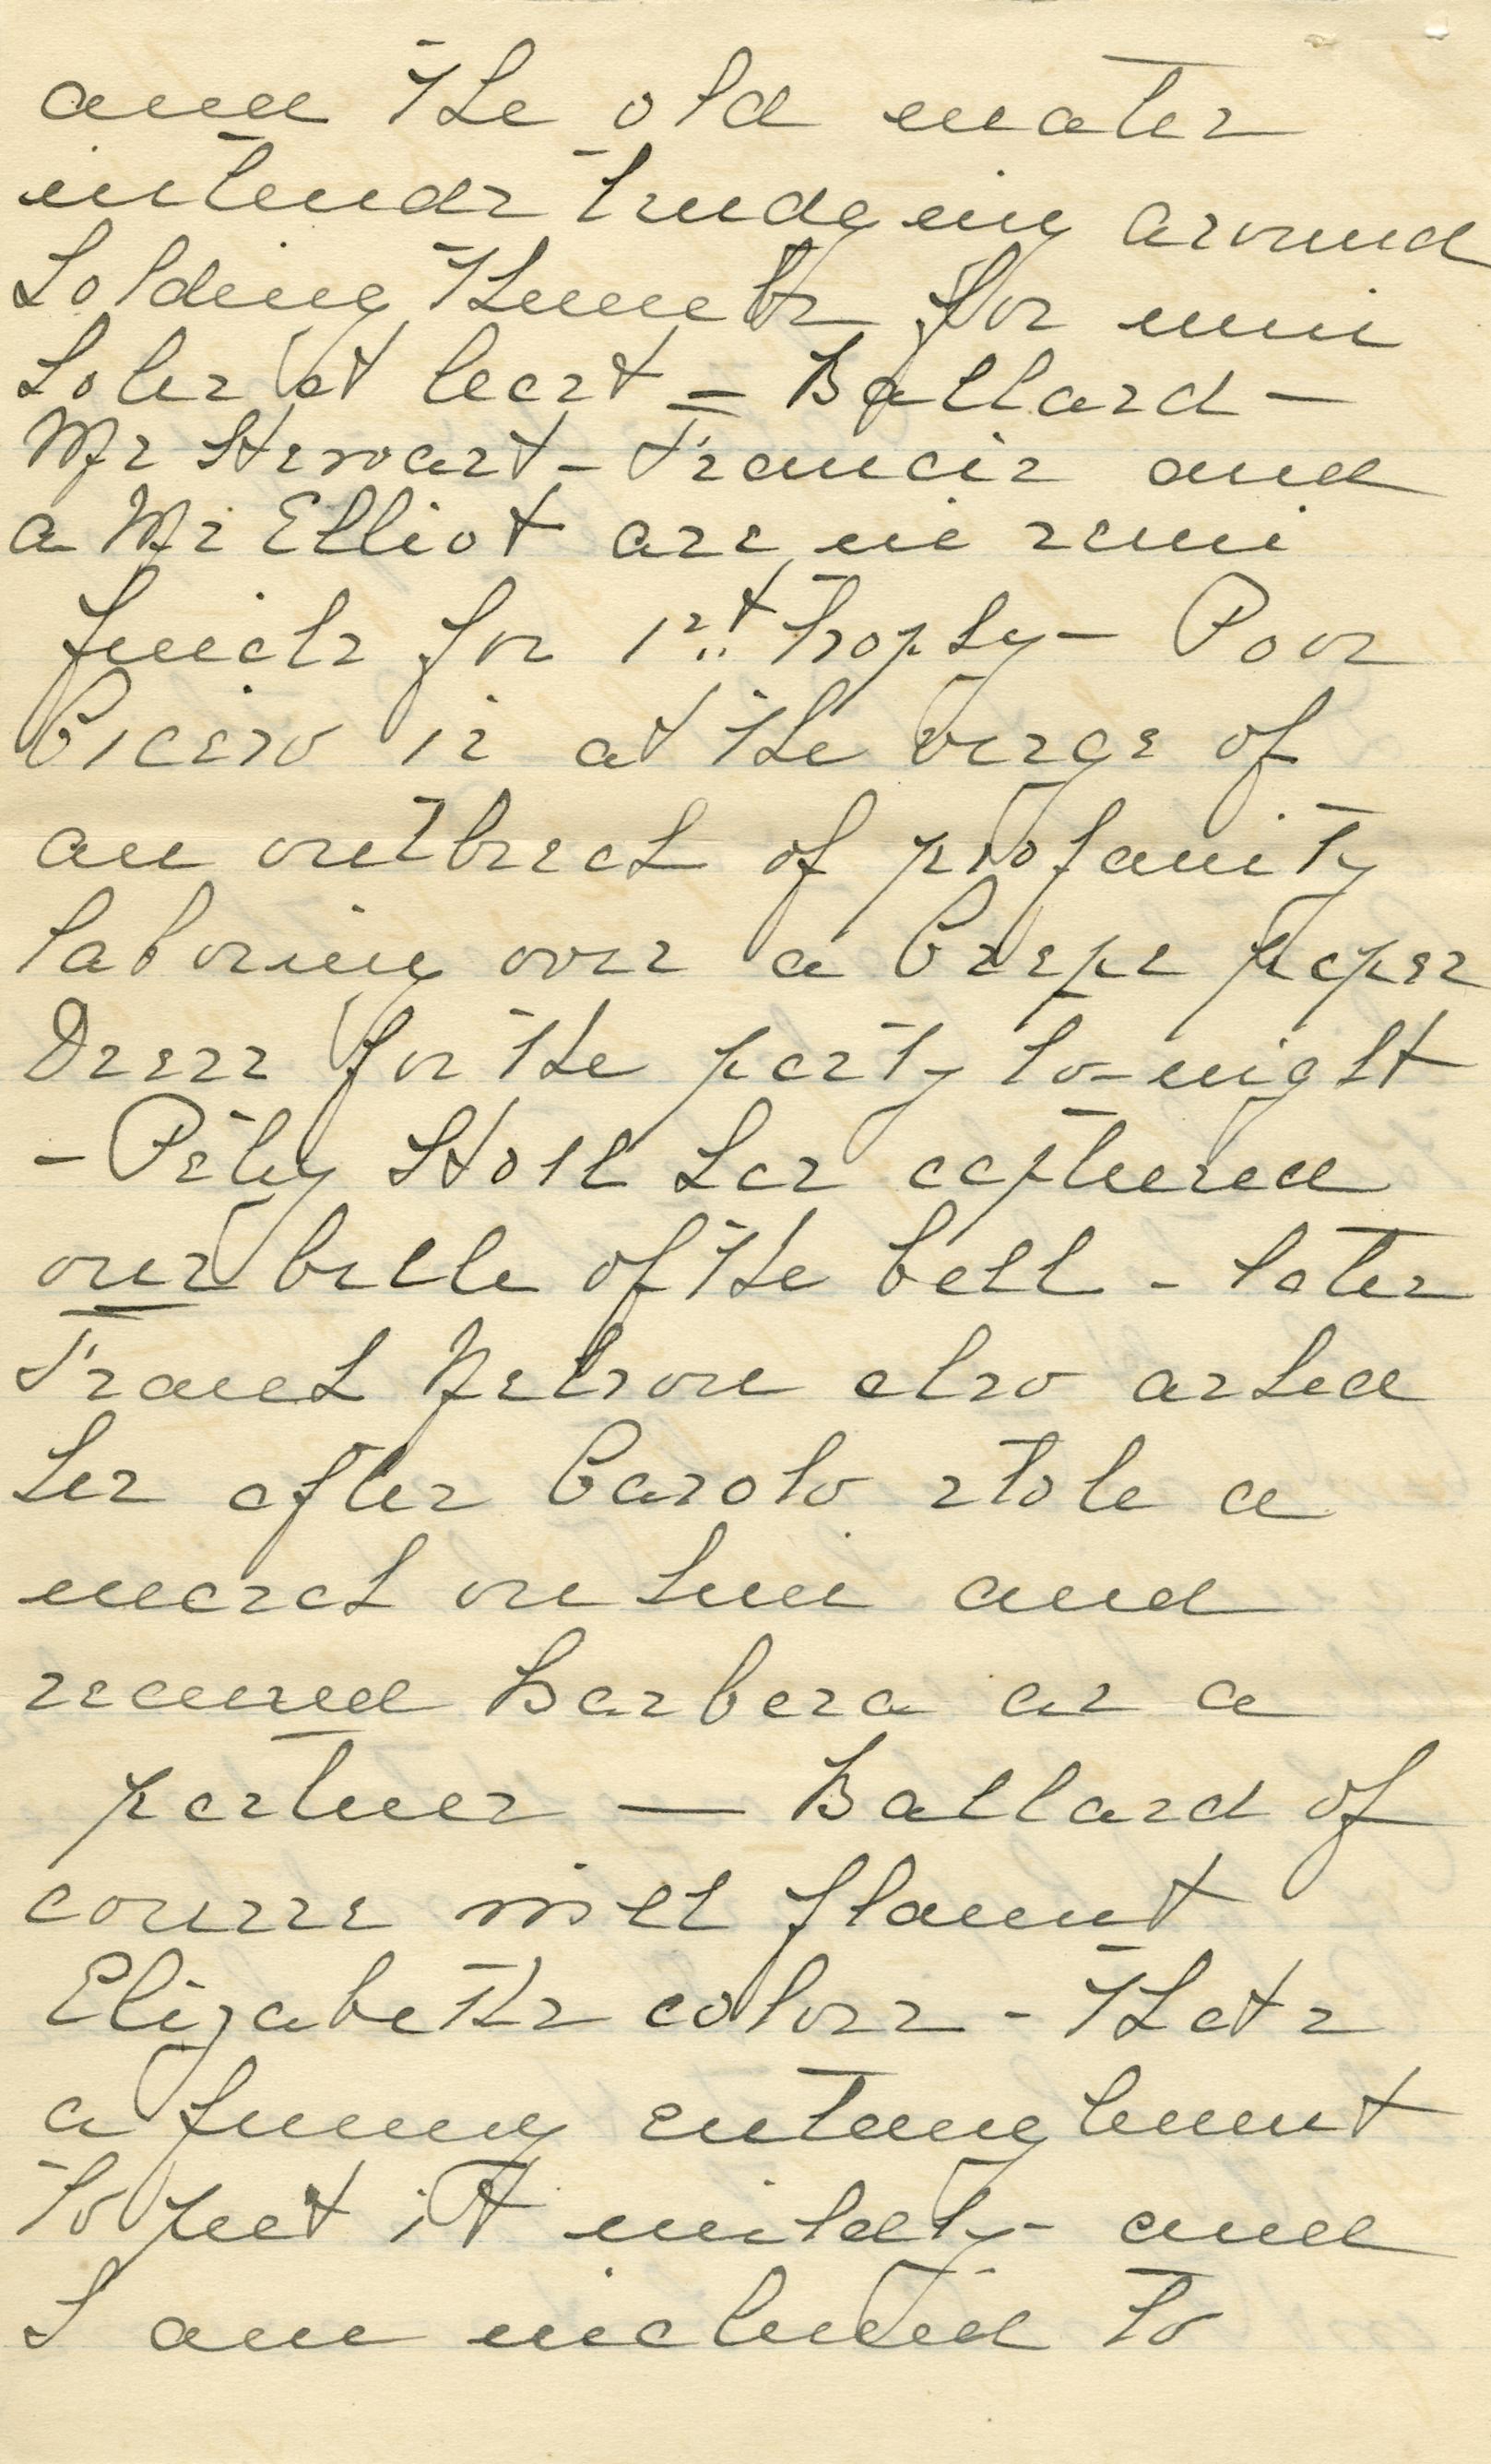 and the old mater
intends trudging around
holding thumbs for nine
holes at least = Ballard -
Mr Stewart - Francis and
a Mr Elliot are in semi
finals for 1st trophy - Poor
Cicero is at the verge of
an outbreak of profanity
laboring over a Crepe paper
Dress for the party to-night
- Petey Stoll has captured
our belle of the ball - later
Frank Nelson also asked
her after Carolo stole a
march on him and
secured Barbera as a
partner — Ballard of
course will flaunt
Elizabeths colors - Thats
a funny entanglement
to put it mildly - and
I am inclined to